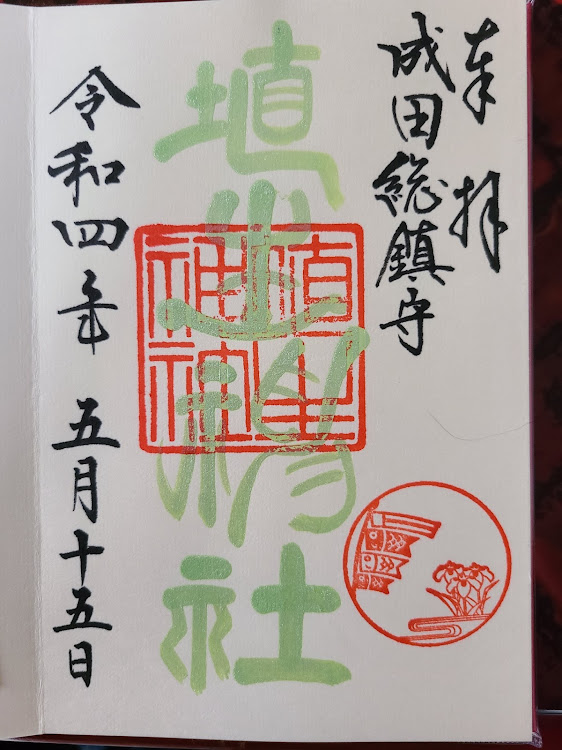 奉拝
成田総鎮守
埴生神社
埴生
神社
令和四年 五月十五日